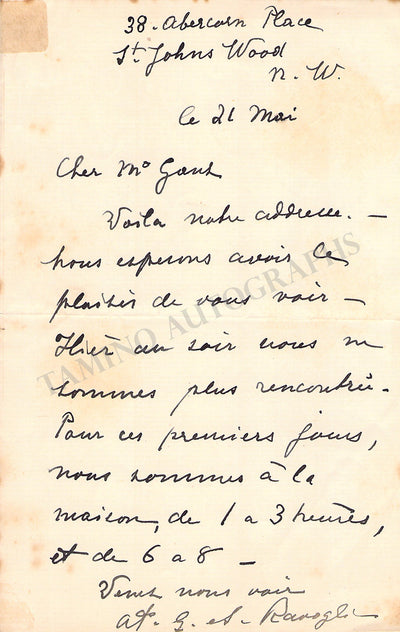 38. Abercorn Place
St. Johns Wood
N. W.
le 21 Mai
Cher Mr
Voila notre addresse. —
nous esperons avoir le
plaisir de vous voir —
Hier au soir nous ne
sommes plus rencontrés.
Pour ces premiers jours,
nous sommes à la
maison, de 1 a 3 heures,
et de 6 a 8 —
Venez nous voir
G. et S. Ravogli
TAMINO AUTOGRAPHS